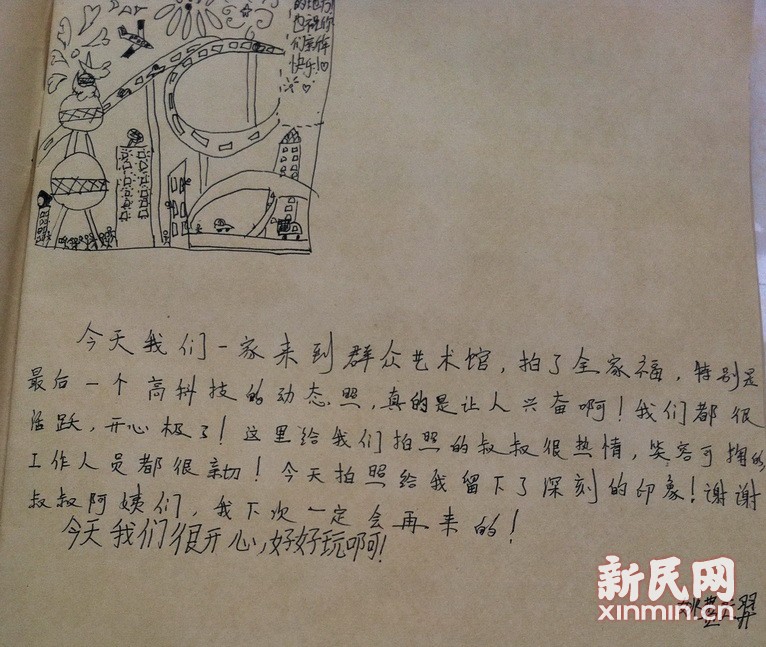 的地方
也祝你
们工作
快乐！
今天我们一家来到群众艺术馆，拍了全家福，特别是
最后一个高科技的动态照，真的是让人兴奋啊！我们都很
活跃，开心极了！这里给我们拍照的叔叔很热情，笑容可掬的，
工作人员都很亲切！今天拍照给我留下了深刻的印象！谢谢
叔叔阿姨们，我下次一定会再来的！
今天我们很开心，好好玩啊！
新民网
xinmin.cn